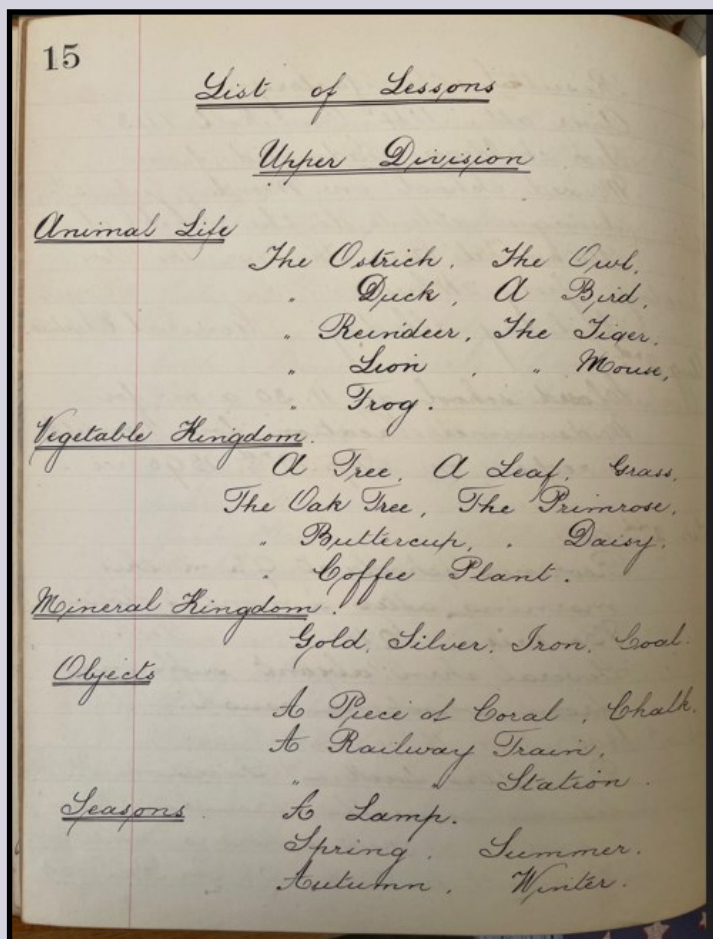 15
List of Lessons
Upper Division
Animal Life
The Ostrich, The Owl,
" Duck, A Bird,
" Reindeer, The Tiger,
" Lion , " Mouse,
" Frog.
Vegetable Kingdom.
A Tree, A Leaf, Grass,
The Oak Tree, The Primrose,
" Buttercup, " Daisy,
" Coffee Plant.
Mineral Kingdom.
Gold, Silver, Iron, Coal.
Objects
A Piece of Coral, Chalk.
A Railway Train,
" " Station.
Seasons A Lamp.
Spring, Summer.
Autumn, Winter.